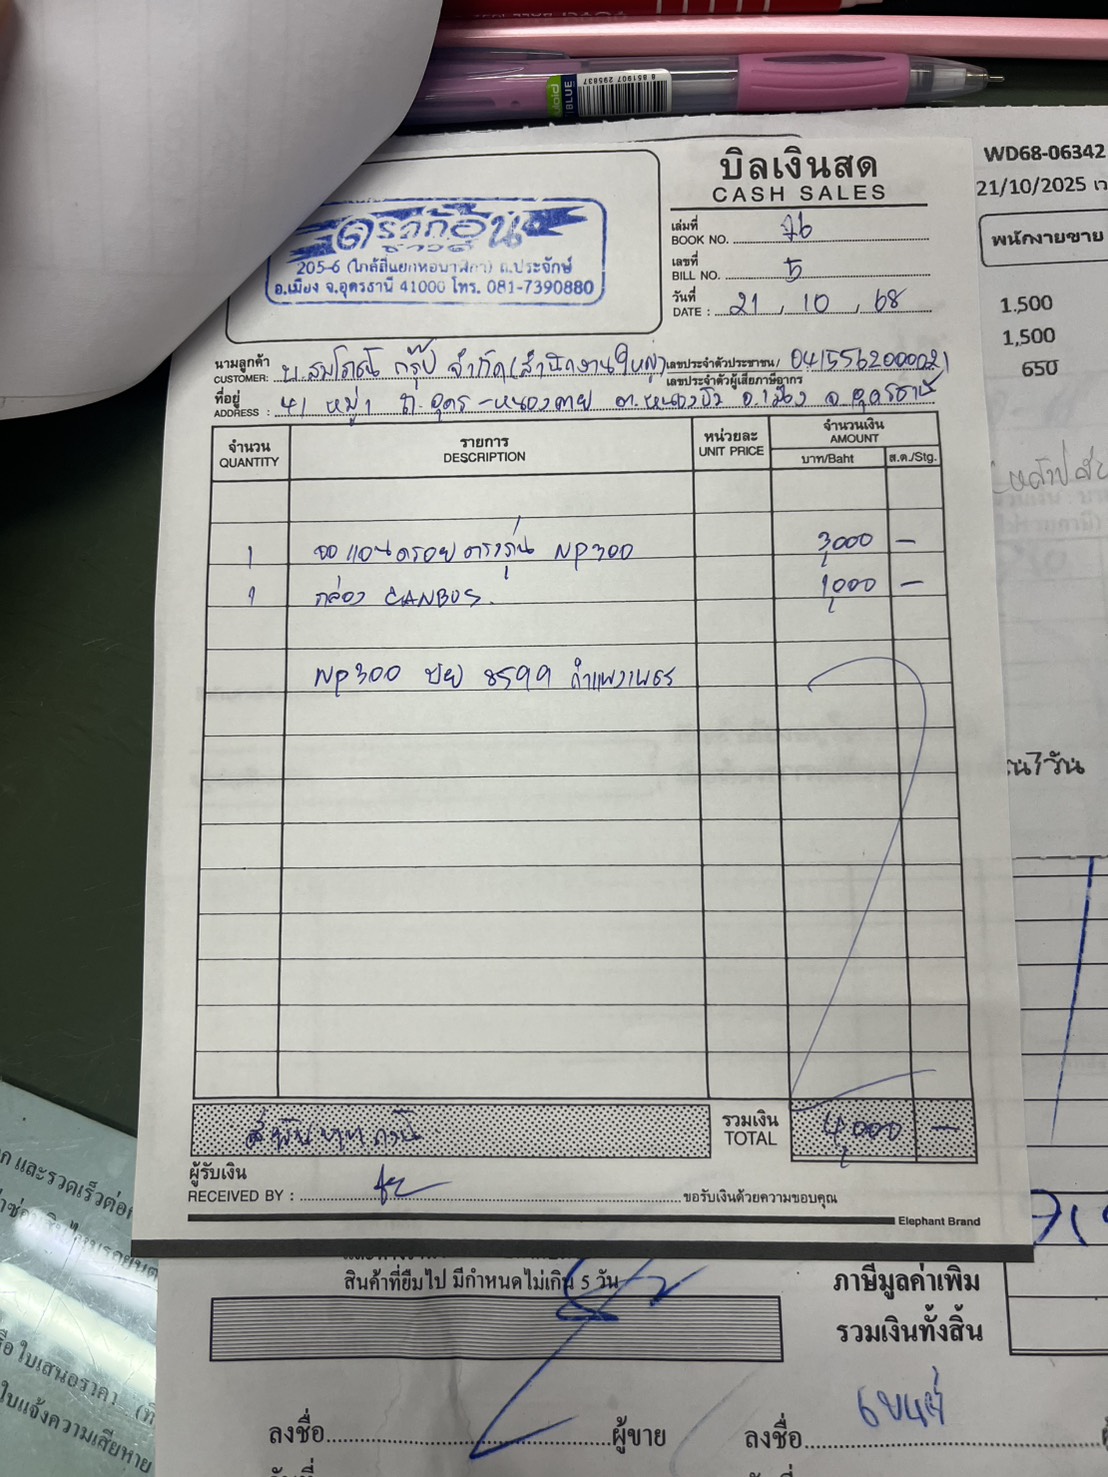 8 851907 295837
BLUE
WD68-06342
21/10/2025
พนักงานขาย
1.500
1,500
650
บิลเงินสด
CASH SALES
ดราก้อน
ซาวด์
205-6 (ใกล้สี่แยกหอนาฬิกา) ถ.ประจักษ์
อ.เมือง จ.อุดรธานี 41000 โทร. 081-7390880
เล่มที่
BOOK NO. 76
เลขที่
BILL NO. 5
วันที่
DATE : 21 / 10 / 68
นามลูกค้า
CUSTOMER: บ.สมโภชน์ กรุ๊ป จำกัด(สำนักงานใหญ่) เลขประจำตัวประชาชน / เลขประจำตัวผู้เสียภาษีอากร 0415562000021
ที่อยู่
ADDRESS : 41 หมู่ 1 ถ.อุดร-หนองคาย ต.หนองบัว อ.เมือง จ.อุดรธานี
จำนวน รายการ หน่วยละ จำนวนเงิน
QUANTITY DESCRIPTION UNIT PRICE AMOUNT
บาท/Baht ส.ต./Stg.
1 จอแอนดรอยตรงรุ่น NP300 3,000 -
1 กล่อง CANBUS 1,000 -
NP300 8599 กำแพงเพชร
สี่พันบาทถ้วน รวมเงิน
TOTAL 4,000 -
ผู้รับเงิน
RECEIVED BY : ขอรับเงินด้วยความขอบคุณ
Elephant Brand
สินค้าที่ยืมไป มีกำหนดไม่เกิน 5 วัน
ภาษีมูลค่าเพิ่ม
รวมเงินทั้งสิ้น
ลงชื่อ ผู้ขาย
ลงชื่อ